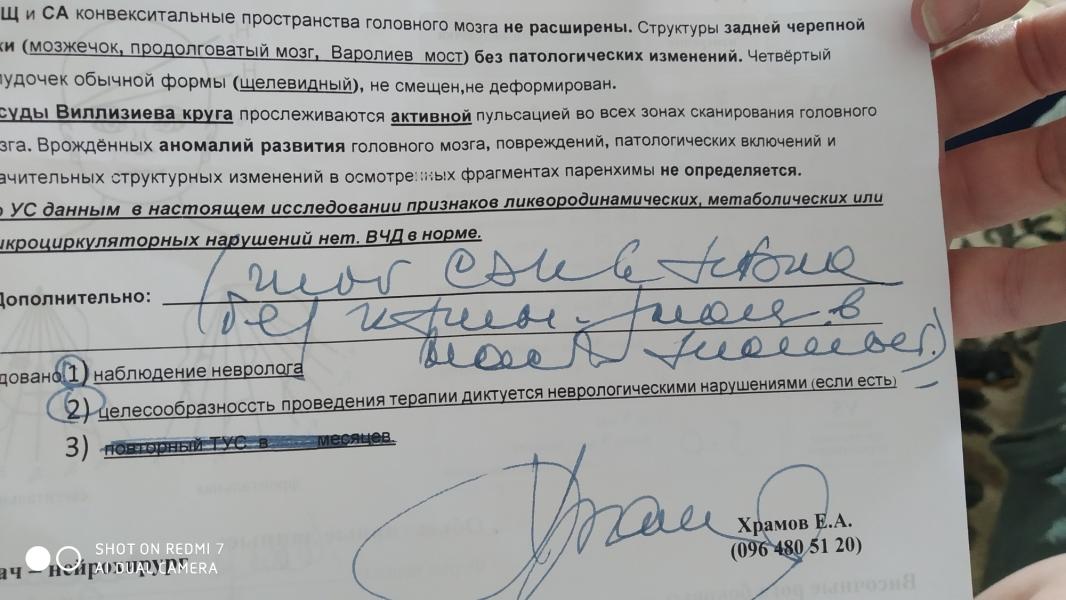 Щ и СА конвекситальные пространства головного мозга не расширены. Структуры задней черепной
ки (мозжечок, продолговатый мозг, Варолиев мост) без патологических изменений. Четвёртый
лудочек обычной формы (щелевидный), не смещен,не деформирован.
суды Виллизиева круга прослеживаются активной пульсацией во всех зонах сканирования головного
зга. Врождённых аномалий развития головного мозга, повреждений, патологических включений и
ачительных структурных изменений в осмотренных фрагментах паренхимы не определяется.
о УС данным в настоящем исследовании признаков ликвородинамических, метаболических или
икроциркуляторных нарушений нет. ВЧД в норме.
Дополнительно:
без
в
довано 1) наблюдение невролога
2) целесообразносcть проведения терапии диктуется неврологическими нарушениями (если есть)
3) повторный ТУС в месяцев
Храмов Е.А.
(096 480 51 20)
ач – нейрохирург
SHOT ON REDMI 7
AI DUAL CAMERA